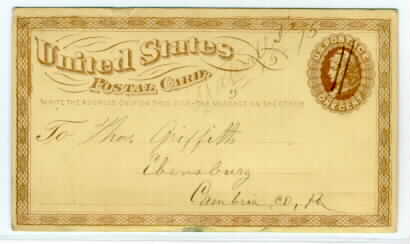 United States
POSTAL CARD.
U.S. POSTAGE
ONE CENT
WRITE THE ADDRESS ONLY ON THIS SIDE - THE MESSAGE ON THE OTHER
To Thos. Griffith
Ebensburg
Cambria co, Pa